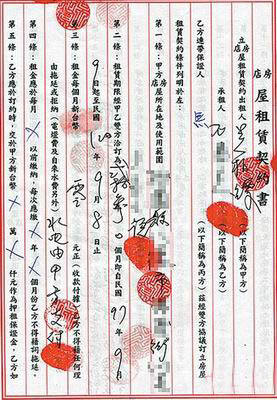 店房屋租賃契約書
立店房屋租賃契約出租人
(以下簡稱為甲方)
承租人
(以下簡稱為乙方)
乙方連帶保證人 無
(以下簡稱為丙方)茲經雙方協議訂立房屋
租賃契約條件列明於左:
第一條:甲方店屋所在地及使用範圍
第二條:租賃期限經甲乙雙方洽訂 個月即自民國97年9月
9日起至民國 年9月8日止
第三條:租金每個月新台幣 零 元正(收款付據)乙方不得藉任何理
由拖延或拒納(電燈費及自來水費另外) 水電由甲方支付
第四條:租金應於每月X以前繳納,每次應繳X年X個月份乙方不得藉詞拖延。
第五條:乙方應於訂約時,交于甲方新台幣X萬X仟元作為押租保證金,乙方如